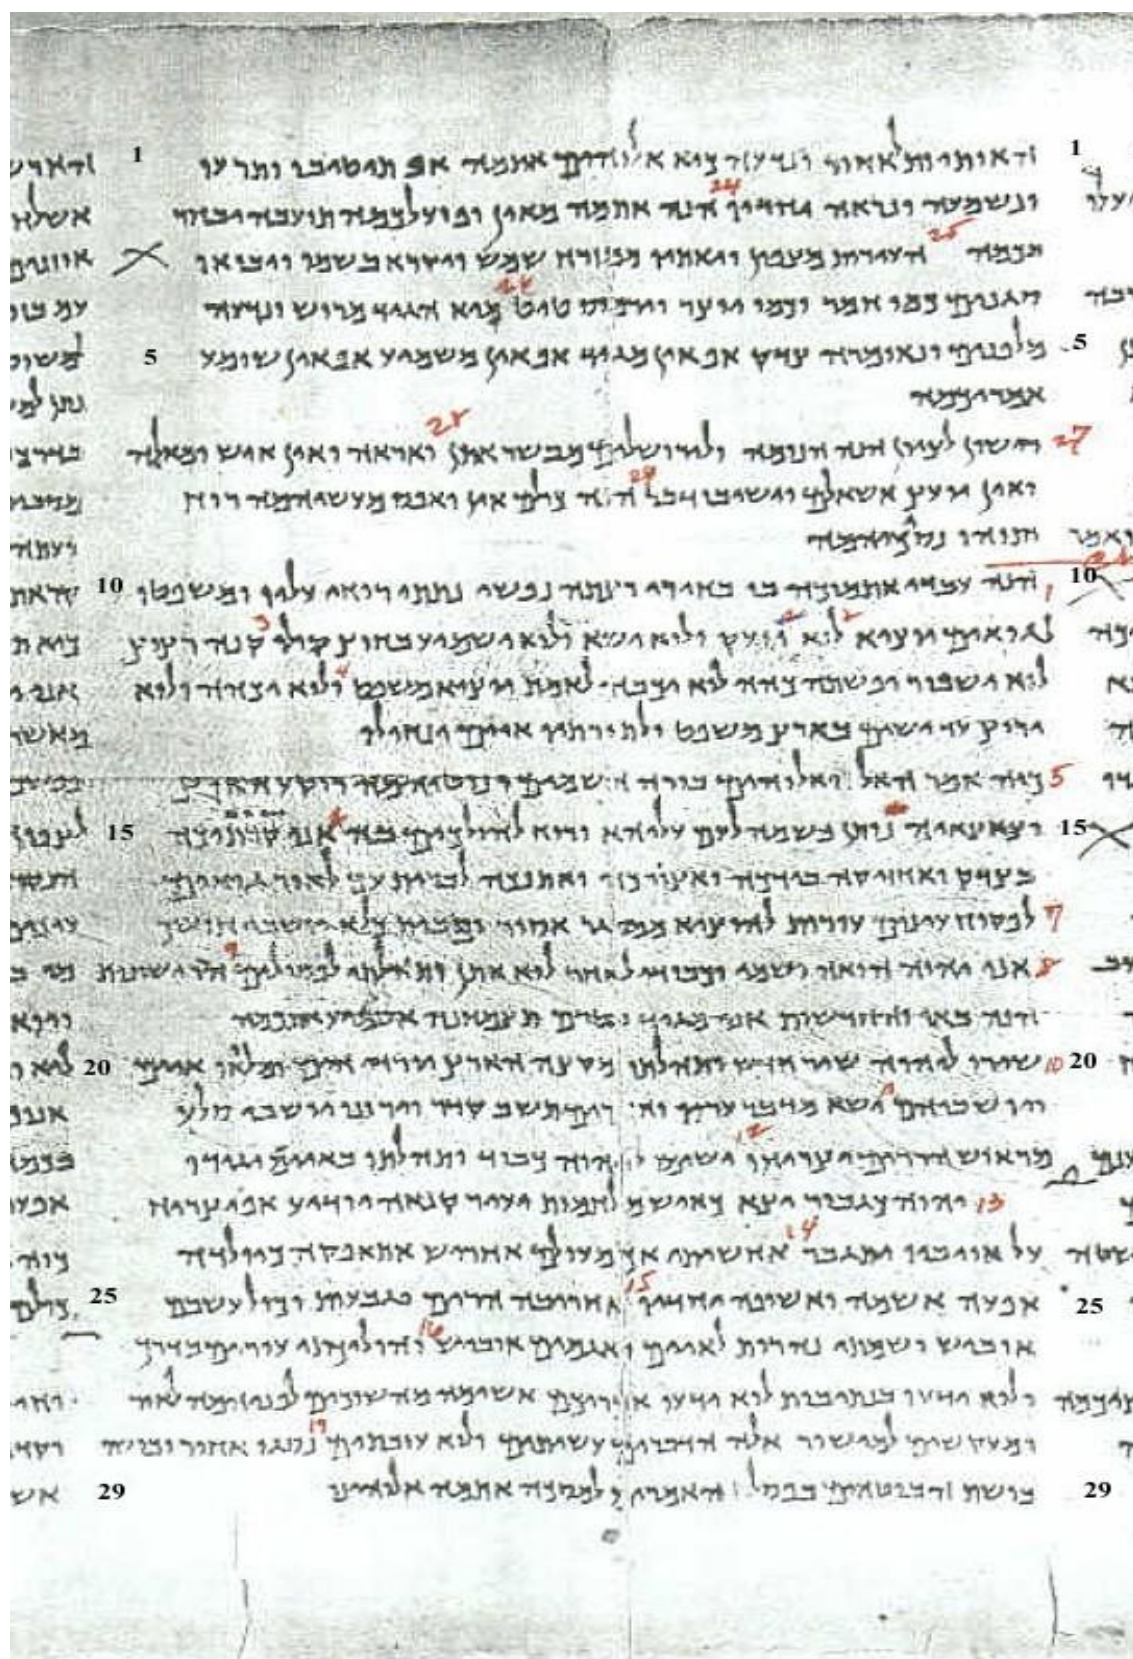 1 האותיות לאחור ונדעה כיא אלוהים אתמה אפ תיטיבו ותרעו 1
ונשמעה ונראה יחדיו 24 הנה אתמה מאין ופועלכמה תועבה יבחר
בכמה 25 העירות מצפון ויאתיו ממזרח שמש ויקרא בשמו ויבואו
סגנים כמו חמר וכמו יוצר וירמוס טיט 26 מיא הגיד מרוש ונדעה
5 מלפנים ונאומרה צדק אפ אין מגיד אפ אין משמיע אפ אין שומע 5
אמריכמה
27 רישון לציון הנה הנומה ולירושלים מבשר אתן 28 ואראה ואין איש ומאלה
ואין יועץ אשאלם וישיבו דבר 29 הנה כולם אין ואפס מעשיהמה רוח
ותוהו נסכיהמה
10 1 הנה עבדי אתמוכה בו בחירי רצתה נפשי נתתי רוחי עליו ומשפטו 10
לגואים יוציא 2 לוא יזעק ולוא ישא ולוא ישמיע בחוץ קולו 3 קנה רצוץ
לוא ישבור ופשתה כהה לוא יכבה לאמת יוציא משפט 4 ולוא יכהה ולוא
ירוץ עד ישים בארץ משפט ולתורתיו איים ינחילו
5 כוה אמר האל ואלוהים בורה השמים ונוטיהמה רוקע הארץ
15 וצאצאיה נותן נשמה לעם עליהא ורוח להולכים בה 6 אני קרתיכה 15
בצדק ואחזיקה בידכה ואצורכה ואתנכה לברית עם לאור גואים
7 לפקוח עינים עורות להוציא ממסגר אסיר ומבית כלא יושבי חושך
8 אני יהוה הואה ושמי וכבודי לאחר לוא אתן ותהלתי לפסילים 9 הרישונות
הנה באו והחדשות אני מגיד בטרם תצמחנה אשמיע אתכמה
20 10 שירו ליהוה שיר חדש ותהלתו מקצה הארץ יורדי הים ומלואו איים 20
ויושביהם 11 ישא מדבר עריו תשב קדר וירונו יושבי סלע
מראש הררים יצריחו 12 ישימו ליהוה כבוד ותהלתו באיים יגידו
13 יהוה כגבור יצא כאיש מלחמות יעיר קנאה יודיע אפ יצריח
על אויביו יתגבר 14 אחשיתי אך מעולם אחריש אתאפקה כיולדה
25 אפעה אשמה ואשופה יחדיו 15 אחריבה הרים וגבעות וכול עשבם 25
אוביש ושמתי נהרות לאיים ואגמים אוביש 16 והולכתי עורים בדרך
ולוא ידעו בנתיבות לוא ידעו אדריכם אשימה מחשוכים לפניהמה לאור
ומעקשים למישור אלה הדברים עשיתים ולוא עזבתים 17 נסגו אחור ובושו
29 בושת הבוטחים בפסל האמרים למסכה אתמה אלוהינו 29